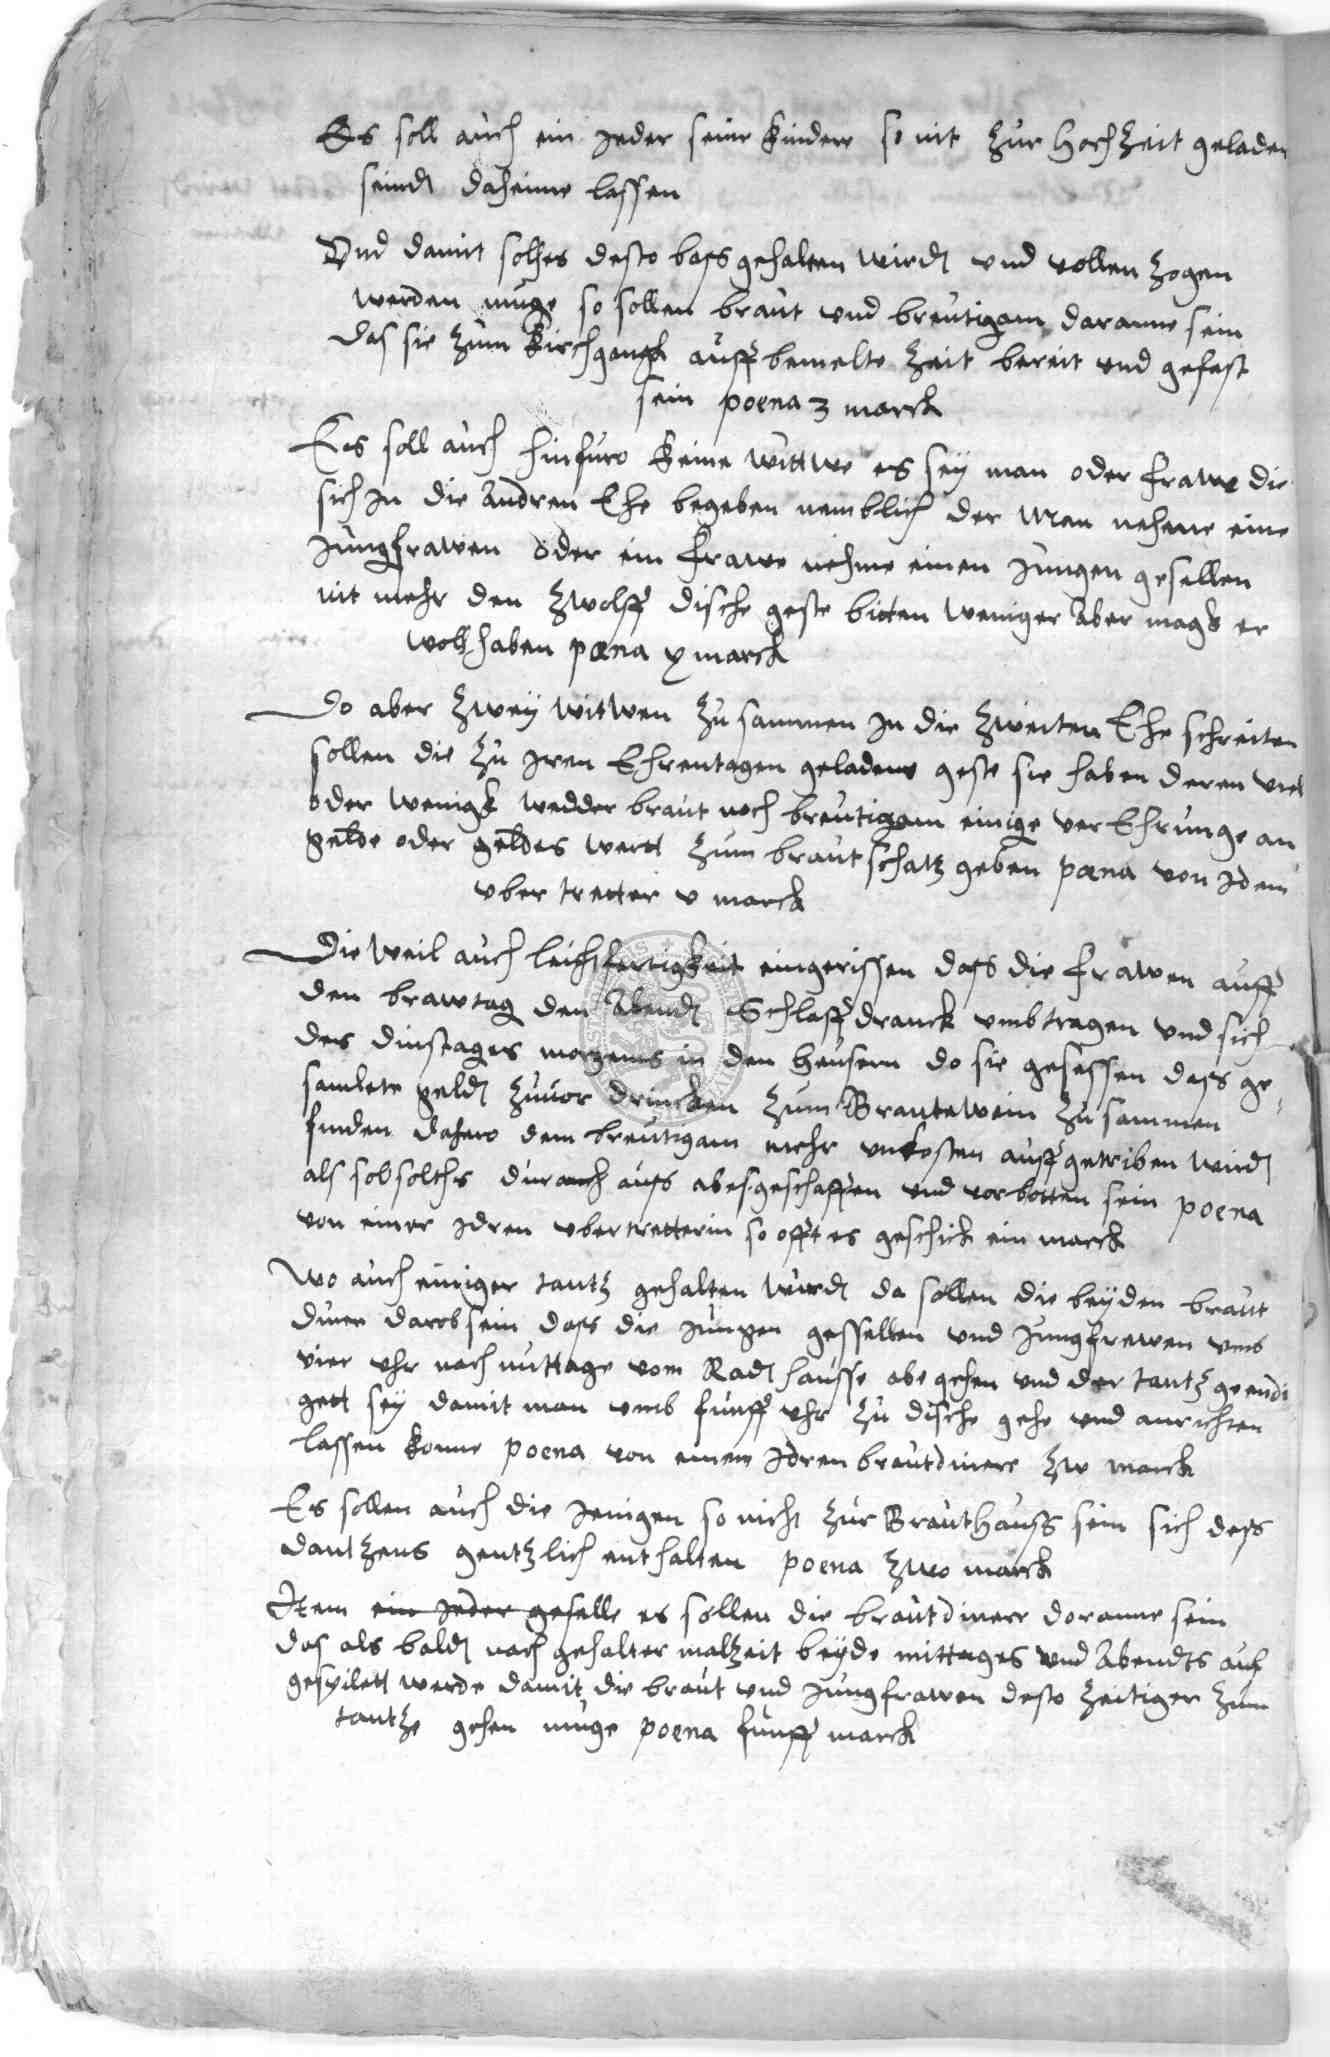 Es soll auch ein Jeder seine kinder so nit zur hochzeit geladen
seindt daheime lassen
Vnd damit solhes desto bass gehalten wirdt vnd vollen zogen
werden muge so sollen braut vnd breutigam daranne sein
das sie zum kirchgangk auff bemelte zeit bereit vnd gefast
sein poena 3 marck
Ees soll auch hinfuro keine wittwe es sey man oder frawe die
sich In die Andren Ehe begeben nemblich der Man neheme eine
Jungfrawen oder ein frawe nehme einen Jungen gesellen
nit mehr den zwolff dische geste bitten weniger Aber magk er
woll haben pœna x marck
Do aber zwey witwen zu sammen In die zweiten Ehe schreiten
sollen die zu Iren Ehrentagen geladene geste sie haben deren viel
oder wenigk wedder braut noch breutigam einige ver Ehrunge an
gelde oder geldes wertt zum braut schatz geben pœna von Idem
vber tretter v marck
Die weil auch leichtfertigkeit eingerissen dass die frawen auff
den brawtag den Abendt Schlaffdranck vmbtragen vnd sich
des dinstages morgens in den heusern do sie gesessen dass ge
samlete geldt zuuor drincken zum Brantewein zu sammen
finden dahero dem breutigam mehr vnkosten auffgetriben wirdt
als sol solchs durauch auss abesgeschaffen vnd vorbotten sein poena
von einer Idren vbertretterin so offt es geschick ein marck
Wo auch einiger tantz gehalten wurdt da sollen die beyden braut
diner darob sein dass die Jungen gessellen vnd Jungfrewen vmb
vier vhr nach mittage vom Radthausse abe gehen vnd der tantz geendi
gett sey damit man vmb funff vhr zu dische gehe vnd anrichten
lassen konne poena von einem Idren brautdiner zw marck
Es sollen auch die Jenigen so nicht zur Brauthauss sein sich dess
dantzens gentzlich enthalten poena zwo marck
Item ein Jeder geselle es sollen die brautdiner doranne sein
das als baldt nach gehalter malzeit beyde mittages vnd Abendts auf
gespilett werde damit die braut vnd Jungfrawen desto zeitiger zum
tantze gehen muge poena funff marck